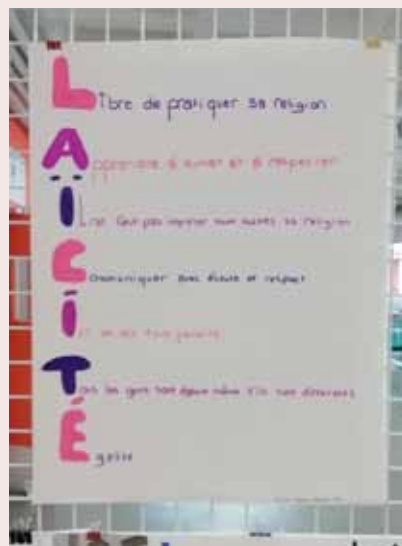 Libre de pratiquer sa religion
Apprendre à aimer et à respecter
Il ne faut pas imposer aux autres sa religion
Communiquer avec écoute et respect
Tous les gens sont égaux même s'ils sont différents
Égalité